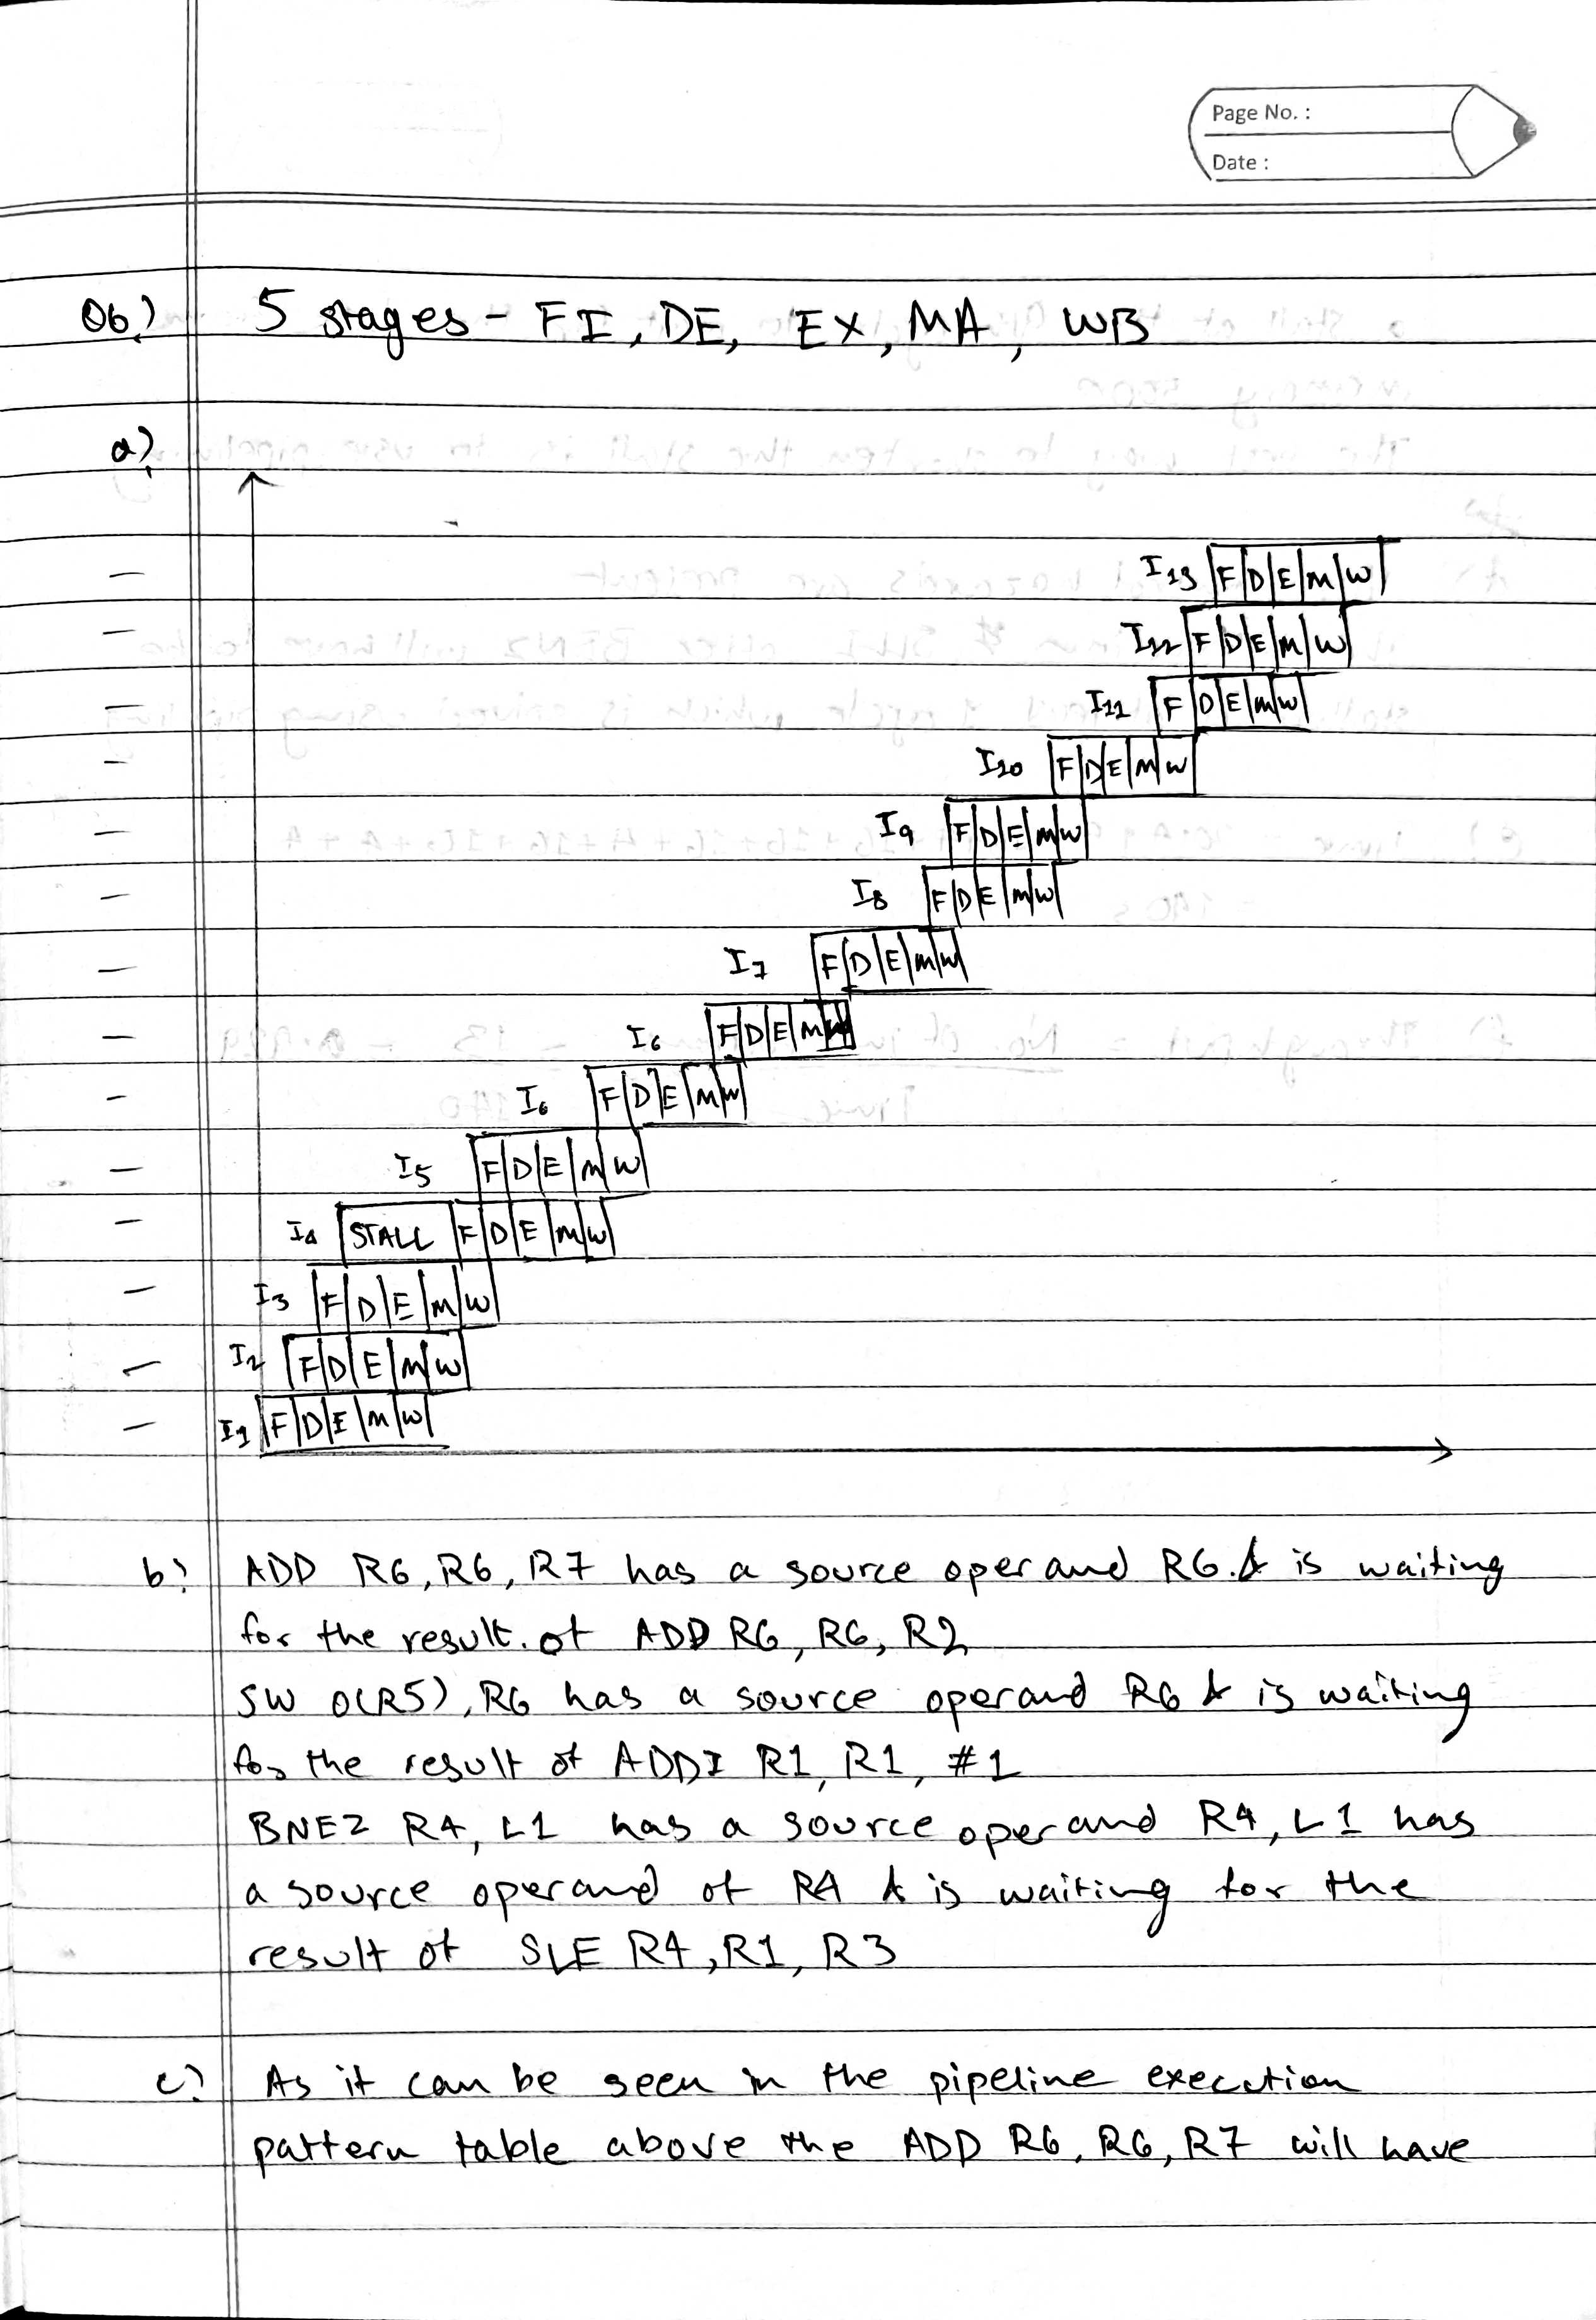 Page No. :
Date :
Q6) 5 stages - FI, DE, EX, MA, WB
a)
I13 F D E M W
I12 F D E M W
I11 F D E M W
I10 F D E M W
I9 F D E M W
I8 F D E M W
I7 F D E M W
I6 F D E M W
I6 F D E M W
I5 F D E M W
I4 STALL F D E M W
I3 F D E M W
I2 F D E M W
I1 F D E M W
b) ADD R6, R6, R7 has a source operand R6 & is waiting
for the result. of ADD R6, R6, R2
SW 0(R5), R6 has a source operand R6 & is waiting
for the result of ADDI R1, R1, #1
BNEZ R4, L1 has a source operand R4, L1 has
a source operand of R4 & is waiting for the
result of SLE R4, R1, R3
c) As it can be seen in the pipeline execution
pattern table above the ADD R6, R6, R7 will have